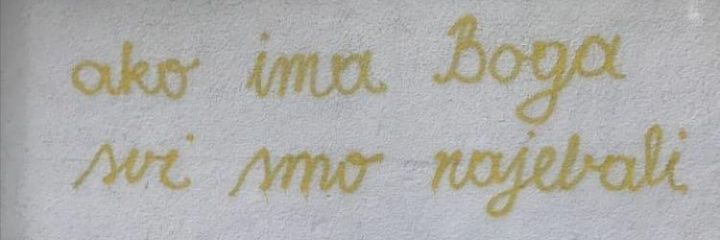 ako ima Boga
svi smo najebali